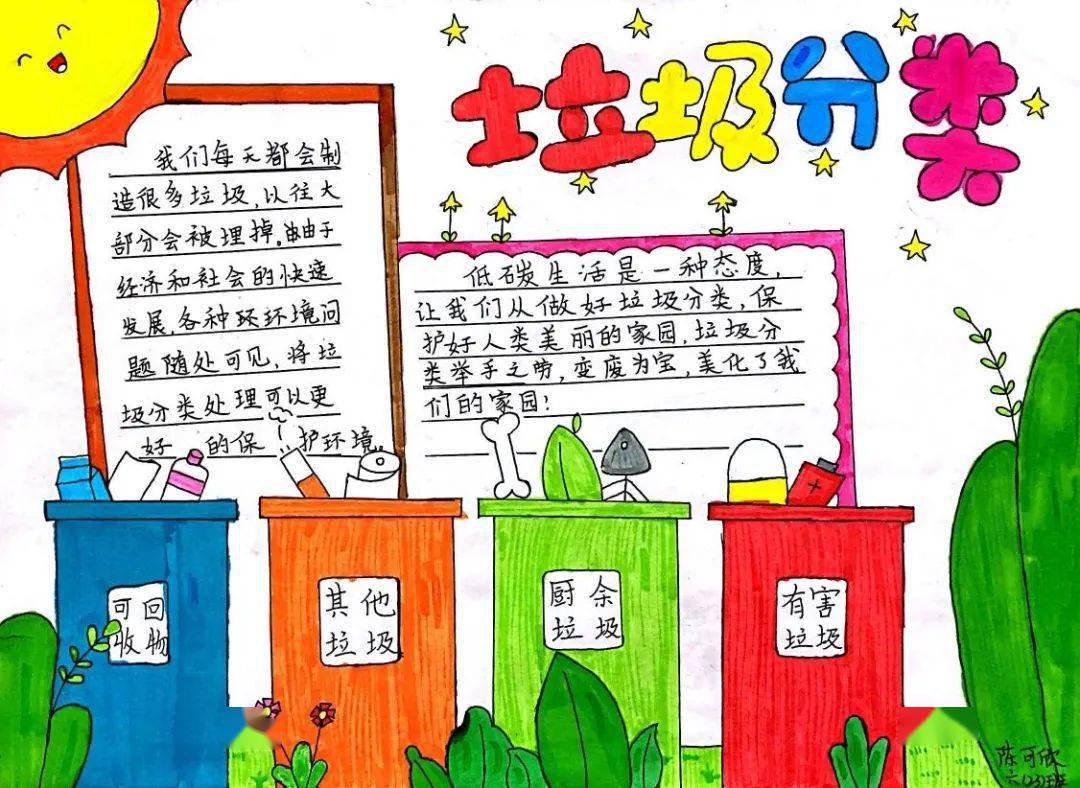 垃圾分类
我们每天都会制
造很多垃圾,以往大
部分会被埋掉。由于
经济和社会的快速
发展,各种环环境问
题随处可见,将垃
圾分类处理可以更
好的保护环境
低碳生活是一种态度,
让我们从做好垃圾分类,保
护好人类美丽的家园,垃圾分
类举手之劳,变废为宝,美化了我
们的家园!
可回
收物
其他
垃圾
厨余
垃圾
有害
垃圾
陈可欣
六(3)班